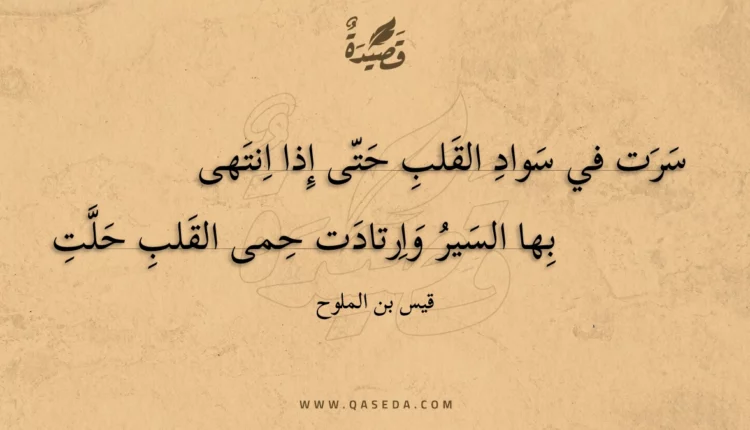 قَصِيدَةٌ
سَرَت في سَوادِ القَلبِ حَتّى إِذا اِنتَهى
بِها السَيرُ وَاِرتادَت حِمى القَلبِ حَلَّتِ
قيس بن الملوح
WWW.QASEDA.COM